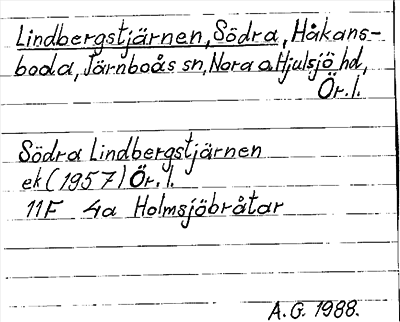 Lindbergstjärnen, Södra, Håkans-
boda, Järnboås sn, Nora o. Hjulsjö hd,
Ör. l.
Södra Lindbergstjärnen
ek (1957) Ör. l.
11F 4a Holmsjöbråtar
A. G. 1988.